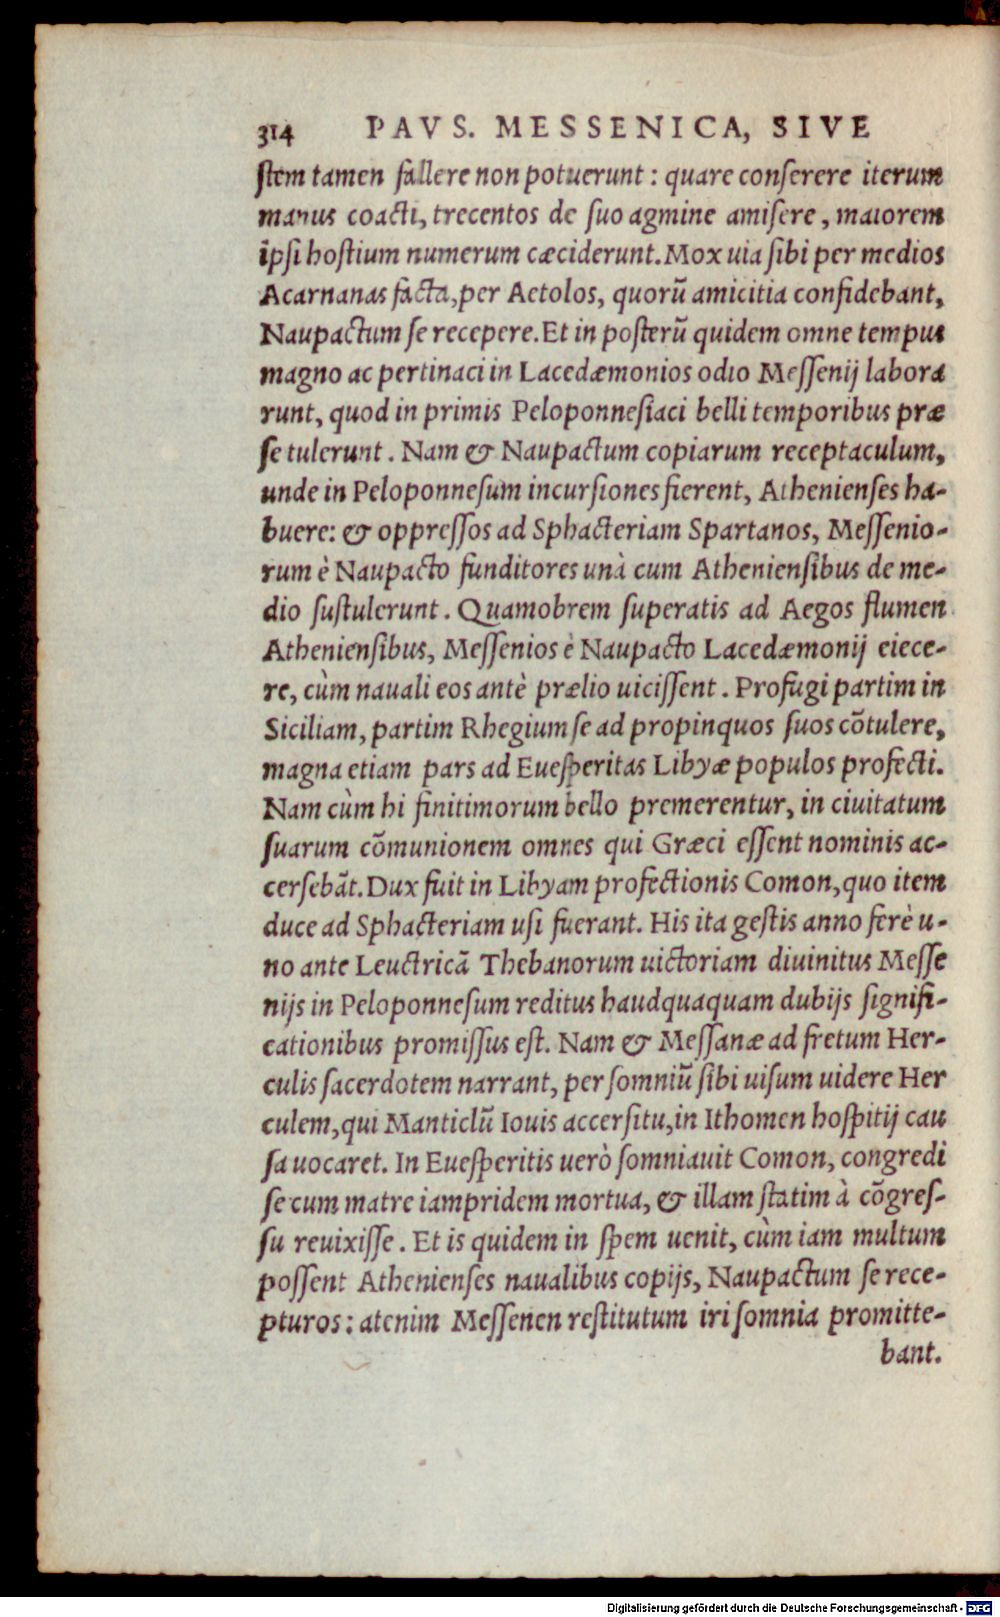 314 PAVS. MESSENICA, SIVE
stem tamen fallere non potuerunt : quare conserere iterum
manus coacti, trecentos de suo agmine amisere, maiorem
ipsi hostium numerum cæciderunt. Mox uia sibi per medios
Acarnanas facta, per Aetolos, quorũ amicitia confidebant,
Naupactum se recepere. Et in posterũ quidem omne tempus
magno ac pertinaci in Lacedæmonios odio Messenij labora
runt, quod in primis Peloponnesiaci belli temporibus præ
se tulerunt. Nam & Naupactum copiarum receptaculum,
unde in Peloponnesum incursiones fierent, Athenienses ha-
buere: & oppressos ad Sphacteriam Spartanos, Messenio-
rum è Naupacto funditores unà cum Atheniensibus de me-
dio sustulerunt. Quamobrem superatis ad Aegos flumen
Atheniensibus, Messenios è Naupacto Lacedæmonij eiece-
re, cùm nauali eos antè prælio uicissent. Profugi partim in
Siciliam, partim Rhegium se ad propinquos suos cõtulere,
magna etiam pars ad Euesperitas Libyæ populos profecti.
Nam cùm hi finitimorum bello premerentur, in ciuitatum
suarum cõmunionem omnes qui Græci essent nominis ac-
cersebãt. Dux fuit in Libyam profectionis Comon, quo item
duce ad Sphacteriam usi fuerant. His ita gestis anno ferè u-
no ante Leuctricã Thebanorum uictoriam diuinitus Messe
nijs in Peloponnesum reditus haudquaquam dubijs signifi-
cationibus promissus est. Nam & Messanæ ad fretum Her-
culis sacerdotem narrant, per somniũ sibi uisum uidere Her
culem, qui Manticlũ Iouis accersitu, in Ithomen hospitij cau
sa uocaret. In Euesperitis uerò somniauit Comon, congredi
se cum matre iampridem mortua, & illam statim à cõgres-
su reuixisse. Et is quidem in spem uenit, cùm iam multum
possent Athenienses naualibus copijs, Naupactum se rece-
pturos: atenim Messenen restitutum iri somnia promitte-
bant.
Digitalisierung gefördert durch die Deutsche Forschungsgemeinschaft - DFG